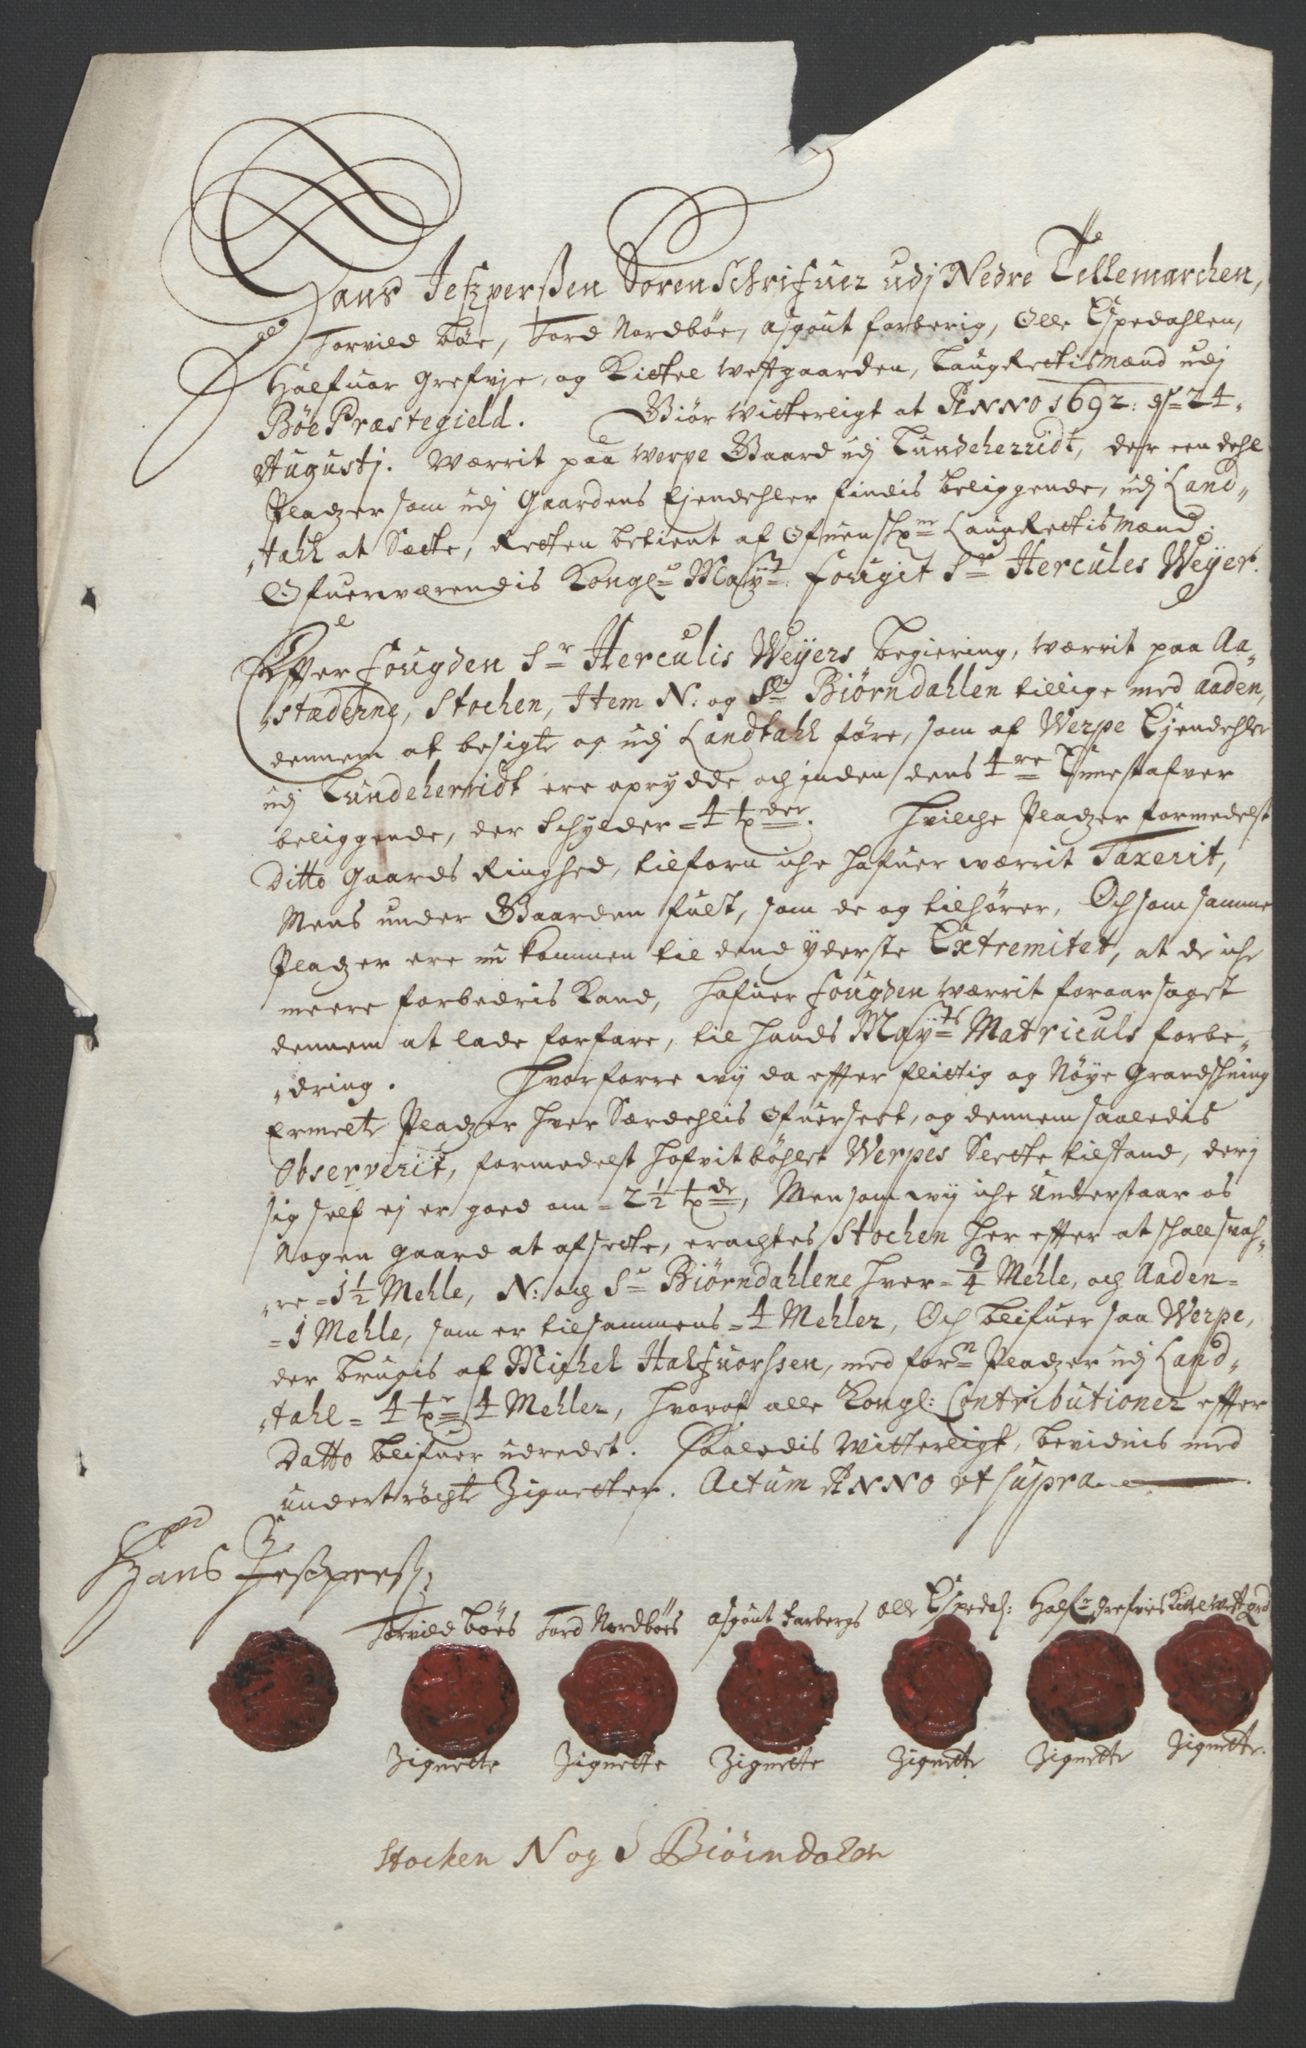 Hans Jeszperßen SorenSchrifuer udj Nedre Tellemarchen,
Torvild Bøe, Tord Nordbøe, Asgout Forberig, Olle Espedahlen,
Halfuor Grefvje, og Kittel Westgaarden, LaugRettismænd udj
Bøe Præstegield. Giør Witterligt at ANNO 1692: d: 24.
Augustj. Wærrit paa Werpe Gaard udj Lundeherridt, der een dehl
Pladzer som udj Gaardens Ejendehler findis beliggende, udj Land„
„tahl at Sætte, Retten betient af Ofuenschr: LaugRettismænd.
Ofuerwærendis Kongl: May: Fougit Sr Hercules Weÿer.
Effter Fougden Sr Herculis Weÿers begiering, wærrit paa Aa„
„stæderne, Stochen, Item N: og Sr Biørndahlen tillige med Aaden,
dennem at besigte og udj Landtahl føre, som af Werpe Ejendehler
udj Lundeherridt ere oprydde och inden dens 4re
beliggende, der Schylder = 4 tpder. Hvilche Pladzer formedelst
Ditto Gaards Ringhed, tilforn iche hafuer wærrit Taxerit,
Mens under Gaarden fult, som de og tilhører, Och som samme
Pladzer ere nu kommen til dend ÿderste Extremitet, at de iche
meere forbedris kand, hafuer Fougden wærrit foraarsaget
dennem at lade forfare, til hands Mayts Matriculs forbe„
„dring. Hvorforre wij da effter flittig og Nøye Grandschning
Ermelte Pladzer hver Særdehlis Ofuerseet, og dennem saaledis
Observerit, formedelst hofvitbøhlet Werpes Slette tilstand, derj
sig self ej er goed om = 2½ tpdr, Men som wij iche Understaar os
Nogen gaard at afsette, erachtes Stochen her effter at schall svah„
„re = 1½ Mehle, N: och Sr Biørndahlene hver = ¾ Mehle, och Aaden =
= 1 Mehle, som er tilsammens = 4 Mehler, Och blifuer saa Werpe,
der brugis af Michel Halfuorssen, med forn Pladzer udj Land„
„tahl = 4 tpr 4 Mehler, hvoraf alle Kongl: Contributioner effter
Datto blifuer udredet. Saaledis Witterligt, bevidnis med
undertrøchte Zignetter. Actum ANNO ut supra
Hans Jeszperß:
Torvild Bøes Tord Nordbøes Asgout Farbergs Olle Espedal: Half: Grefvies Kittel Westgrd
Zignette Zignette Zignette Zignette Zignette Zignette.
Stocken N og S Biörndalen